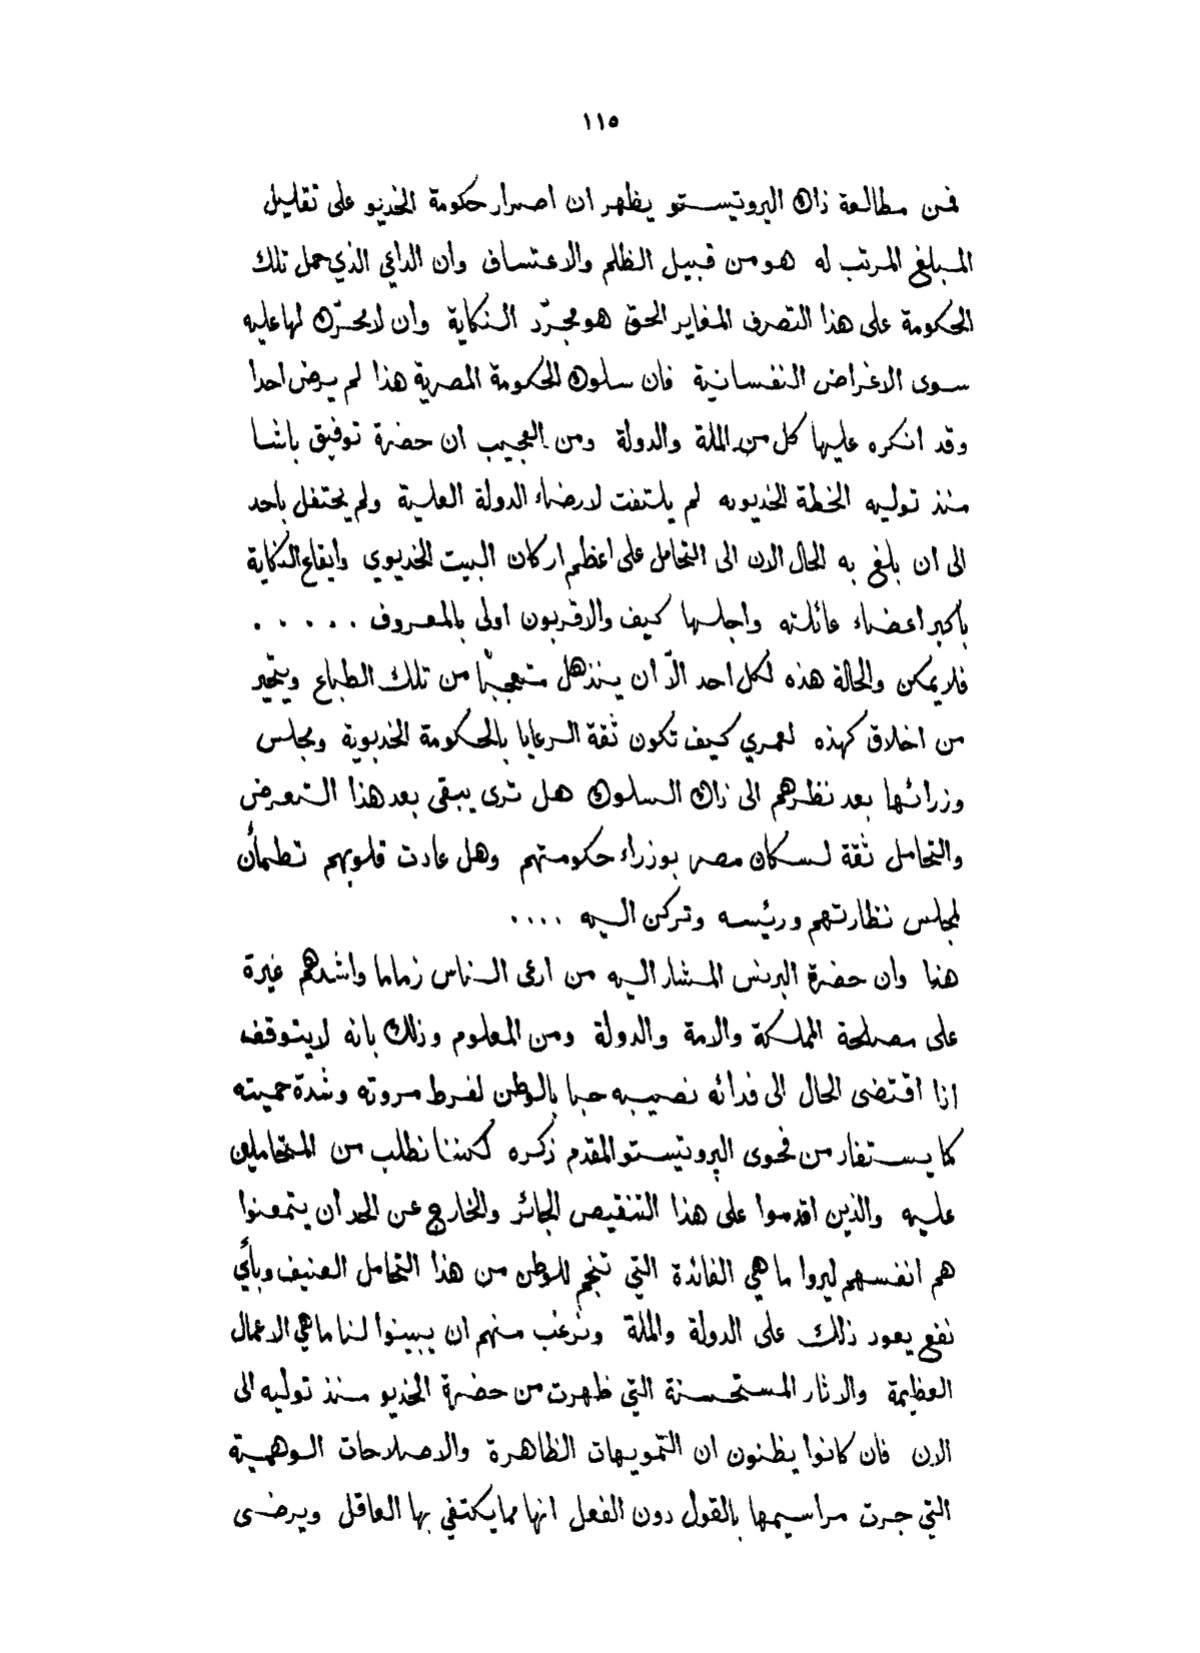 ١١٥
فمن مطالعة ذاك البروتيستو يظهر ان اصرار حكومة الخديو على تقليل
المبلغ المرتب له هو من قبيل الظلم والاعتساف وان الداعي الذي حمل تلك
الحكومة على هذا التصرف المغاير الحق هو مجرّد النكاية وان لا محرّك لها عليه
سوى الاغراض النفسانية فان سلوك الحكومة المصرية هذا لم يرض احدا
وقد انكره عليها كل من الملة والدولة ومن العجيب ان حضرة توفيق باشا
منذ توليه الخطة الخديويه لم يلتفت لارضاء الدولة العلية ولم يحتفل باحد
الى ان بلغ به الحال الان الى التحامل على اعظم اركان البيت الخديوي وايقاع النكاية
باكبر اعضاء عائلته واجلها كيف والاقربون اولى بالمعروف . . . . .
فلا يمكن والحالة هذه لكل احد الاّ ان ينذهل متعجبّا من تلك الطباع ويتحيّر
من اخلاق كهذه لعمري كيف تكون ثقة الرعايا بالحكومة الخديوية ومجلس
وزرائها بعد نظرهم الى ذاك السلوك هل ترى يبقى بعد هذا التعرض
والتحامل ثقة لسكان مصر بوزراء حكومتهم وهل عادت قلوبهم تطمأن
لمجلس نظارتهم ورئيسه وتركن اليه ....
هذا وان حضرة البرنس المشار اليه من ارعى الناس زماما واشدهم غيرة
على مصلحة المملكة والامة والدولة ومن المعلوم وذلك بانه لا يتوقف
اذا اقتضى الحال الى فدائه نصيبه حبا بالوطن لفرط مروته وشدة حميته
كما يستفاد من فحوى البروتيستو المقدم ذكره لكننا نطلب من المتحاملين
عليه والذين اقدموا على هذا التنقيص الجائر والخارج عن الحد ان يتمعنوا
هم انفسهم ليروا ما هي الفائدة التي تنجم للوطن من هذا التحامل العنيف وبأي
نفع يعود ذلك على الدولة والملة ونرغب منهم ان يبينوا لنا ما هي الاعمال
العظيمة والاثار المستحسنة التي ظهرت من حضرة الخديو منذ توليه الى
الان فان كانوا يظنون ان التمويهات الظاهرة والاصلاحات الوهمية
التي جرت مراسيمها بالقول دون الفعل انها مما يكتفي بها العاقل ويرضى